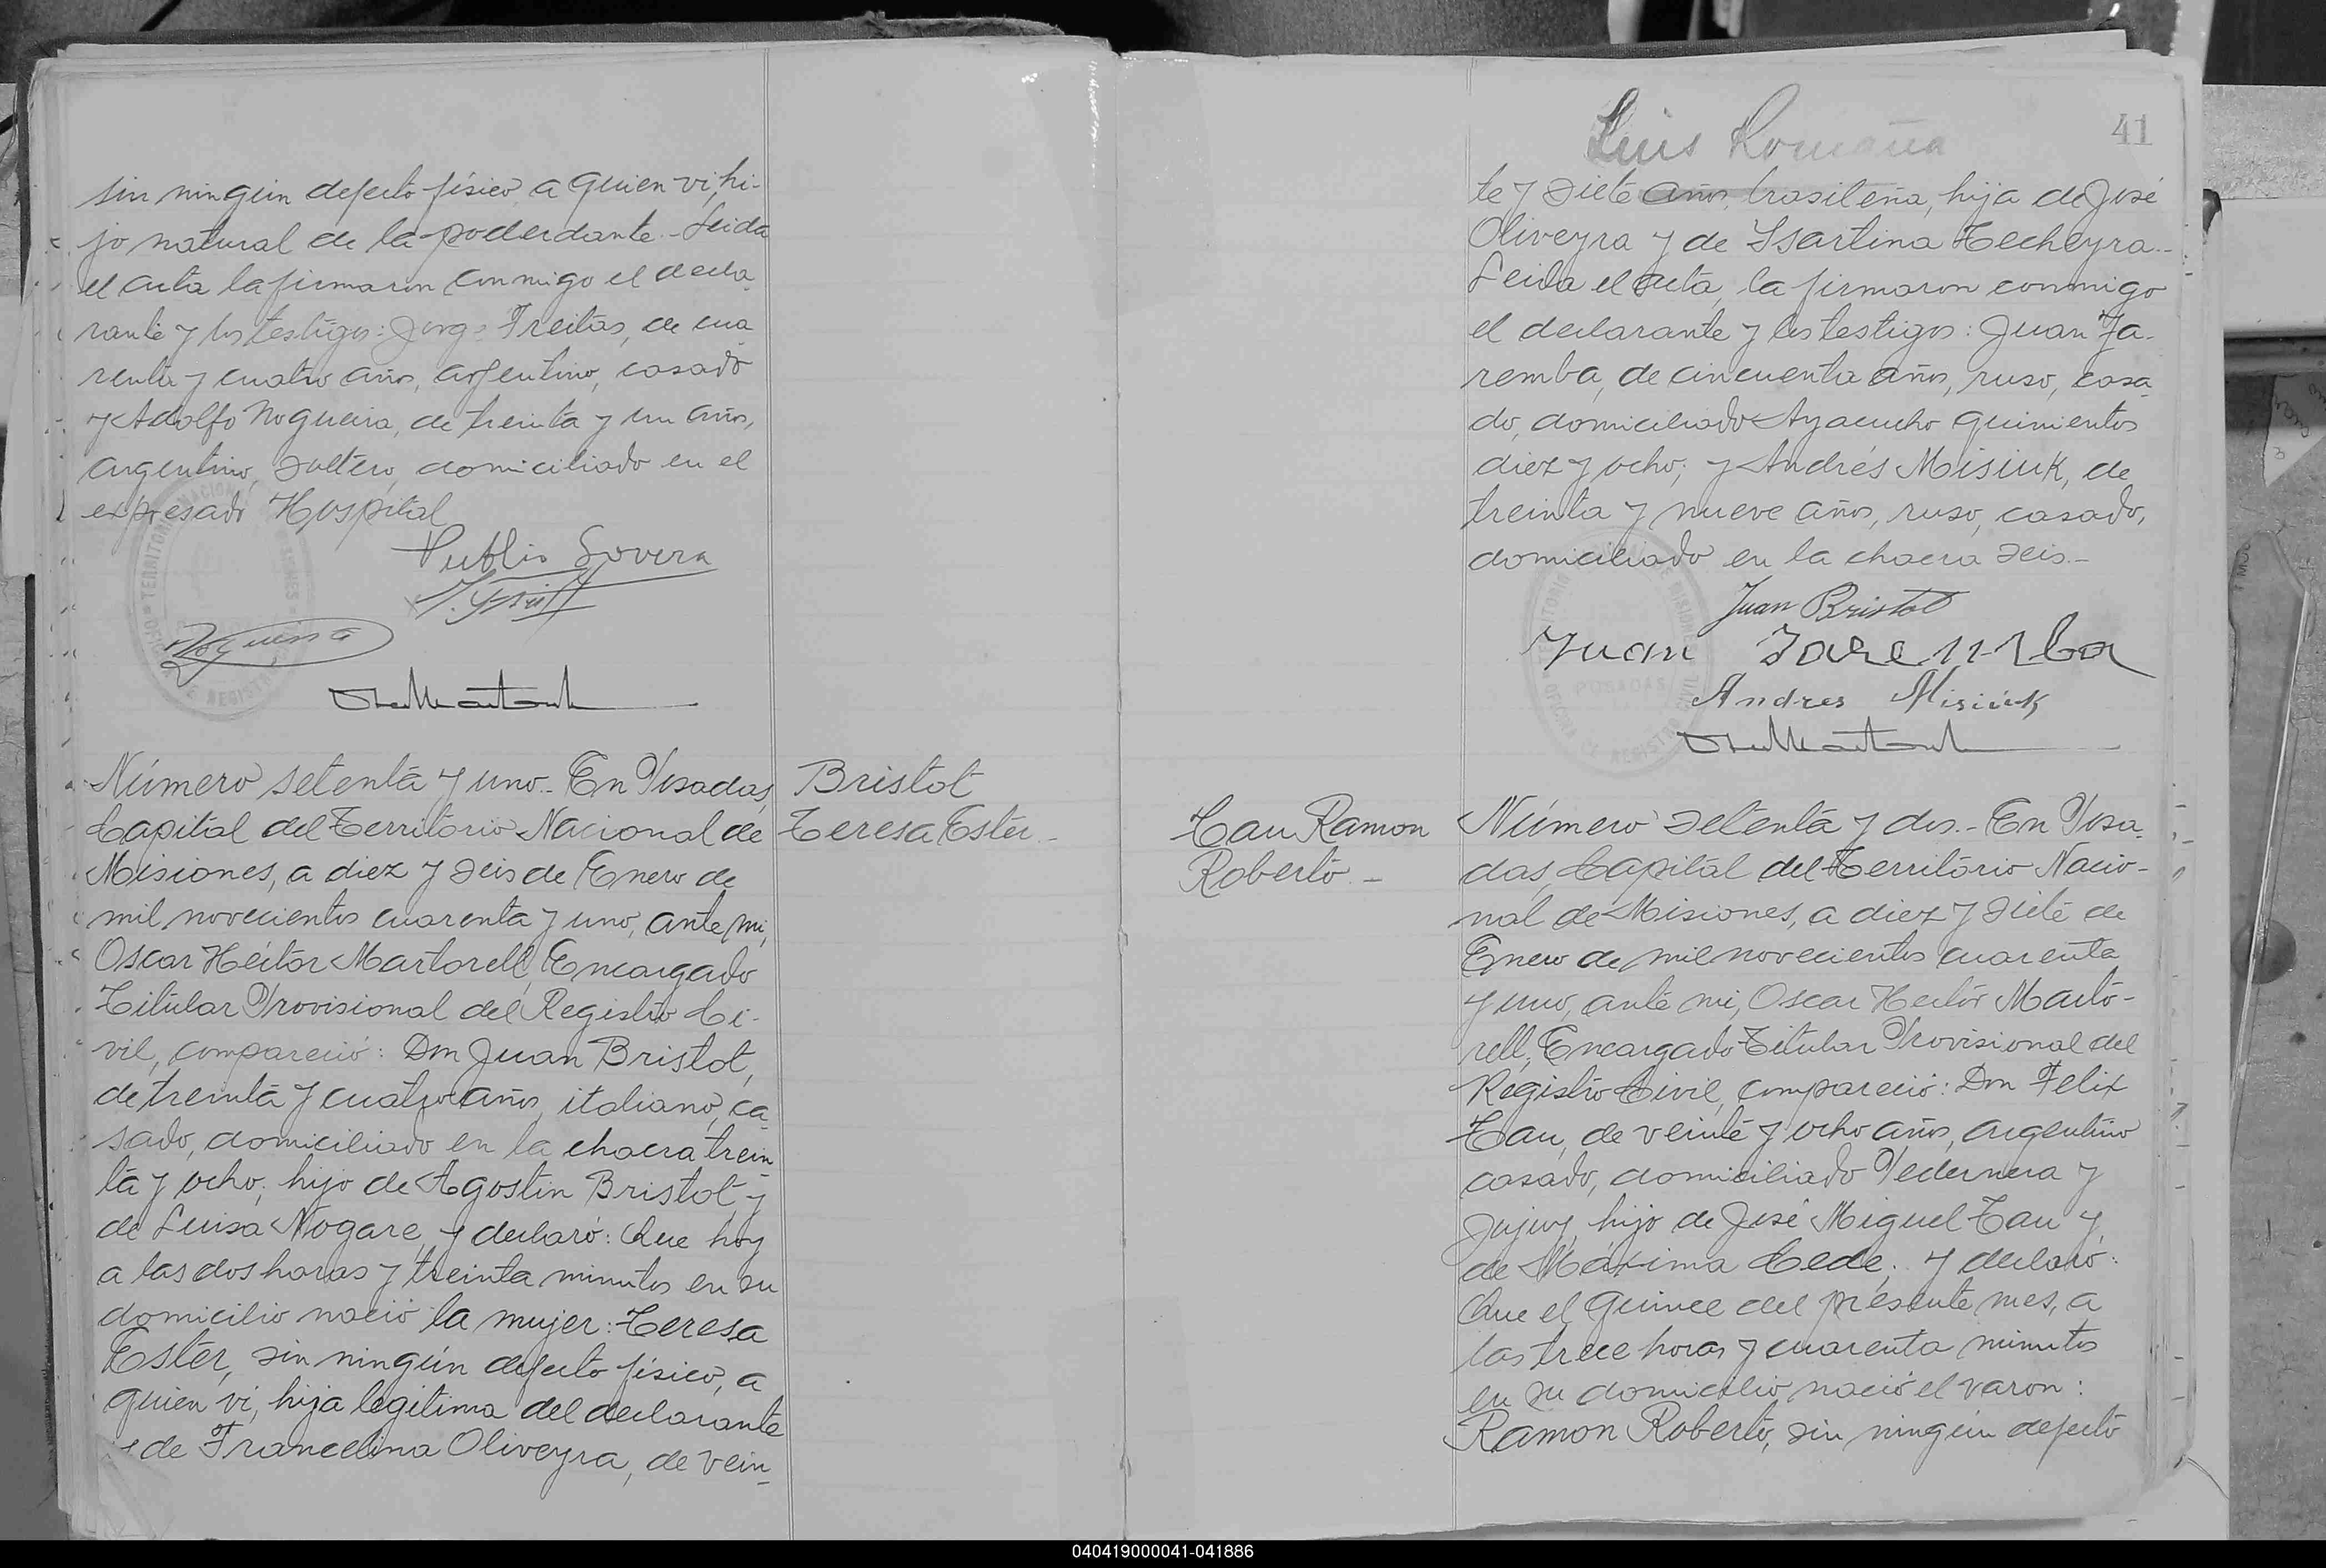 sin ningún defecto físico, a quien vi, hi-
jo natural de la poderdante.- Leida
el acta la firmaron conmigo el decla-
rante y los testigos: Jorge Freitas, de cua-
renta y cuatro años, argentino, casado
y Adolfo Nogueira, de treinta y un años,
argentino, soltero, domiciliado en el
expresado Hospital
Publio Lovera
Nogueira
Número setenta y uno.- En Posadas,
Capital del Territorio Nacional de
Misiones, a diez y seis de Enero de
mil novecientos cuarenta y uno, ante mi,
Oscar Héctor Martorell, Encargado
Titular Provisional del Registro Ci-
vil, compareció: Don Juan Bristot,
de treinta y cuatro años, italiano, ca-
sado, domiciliado en la chacra trein-
ta y ocho; hijo de Agostin Bristot y
de Luisa Nogare, y declaró: Que hoy
a las dos horas y treinta minutos en su
domicilio nació la mujer: Teresa
Ester, sin ningún defecto físico, a
quien vi, hija legitima del declarante
y de Francelina Oliveyra, de vein-
Bristot
Teresa Ester.-
Luis Romaña
41
te y siete años, brasileña, hija de José
Oliveyra y de Isartina Techeyra.-
Leida el acta, la firmaron conmigo
el declarante y los testigos: Juan Ja-
remba, de cincuenta años, ruso, casa-
do, domiciliado Ayacucho quinientos
diez y ocho; y Andrés Misiuk, de
treinta y nueve años, ruso, casado,
domiciliado en la chacra seis.-
Juan Bristot
Juan Jaremba
Andres Misiuk
Tau Ramon
Roberto.-
Número setenta y dos.- En Posa-
das, Capital del Territorio Nacio-
nal de Misiones, a diez y siete de
Enero de mil novecientos cuarenta
y uno, ante mi, Oscar Hector Marto-
rell, Encargado Titular Provisional del
Registro Civil, compareció: Don Felix
Tau, de veinte y ocho años, argentino
casado, domiciliado Pedernera y
Jujuy, hijo de José Miguel Tau y
de Máxima Cede; y declaró:
Que el quince del presente mes, a
las trece horas y cuarenta minutos
en su domicilio nació el varon:
Ramon Roberto, sin ningún defecto
040419000041-041886